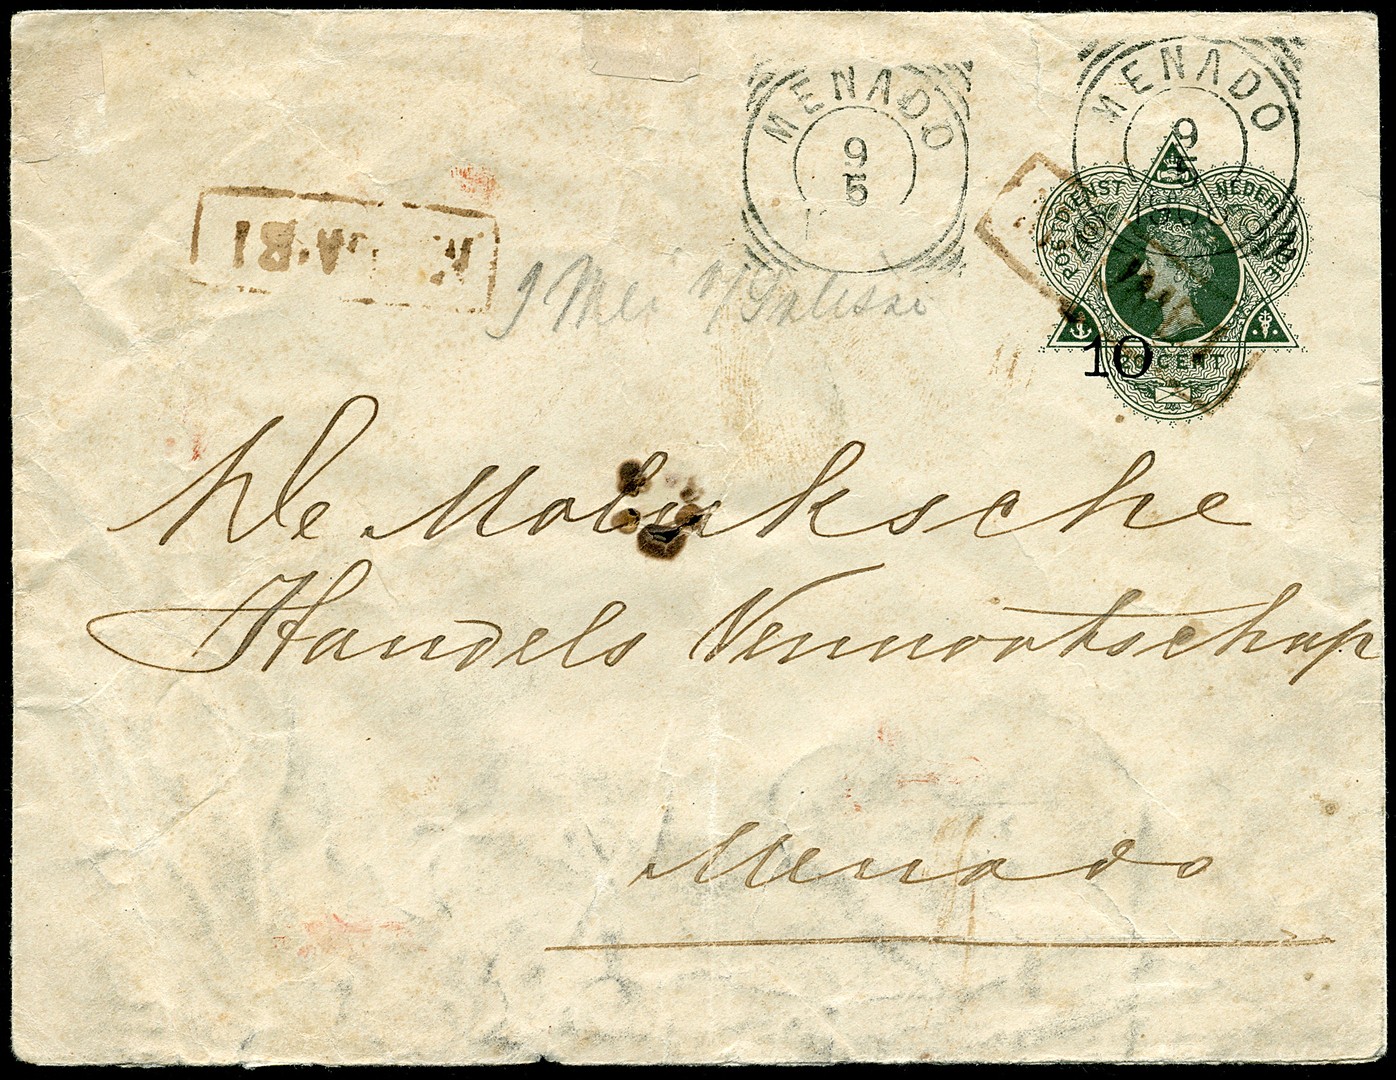 MENADO
9
5
MENADO
9
5
POSTDIENST NEDER INDIE
10
20 CENT
9 Mei
De Moluksche
Handels Vennootschap
Menado